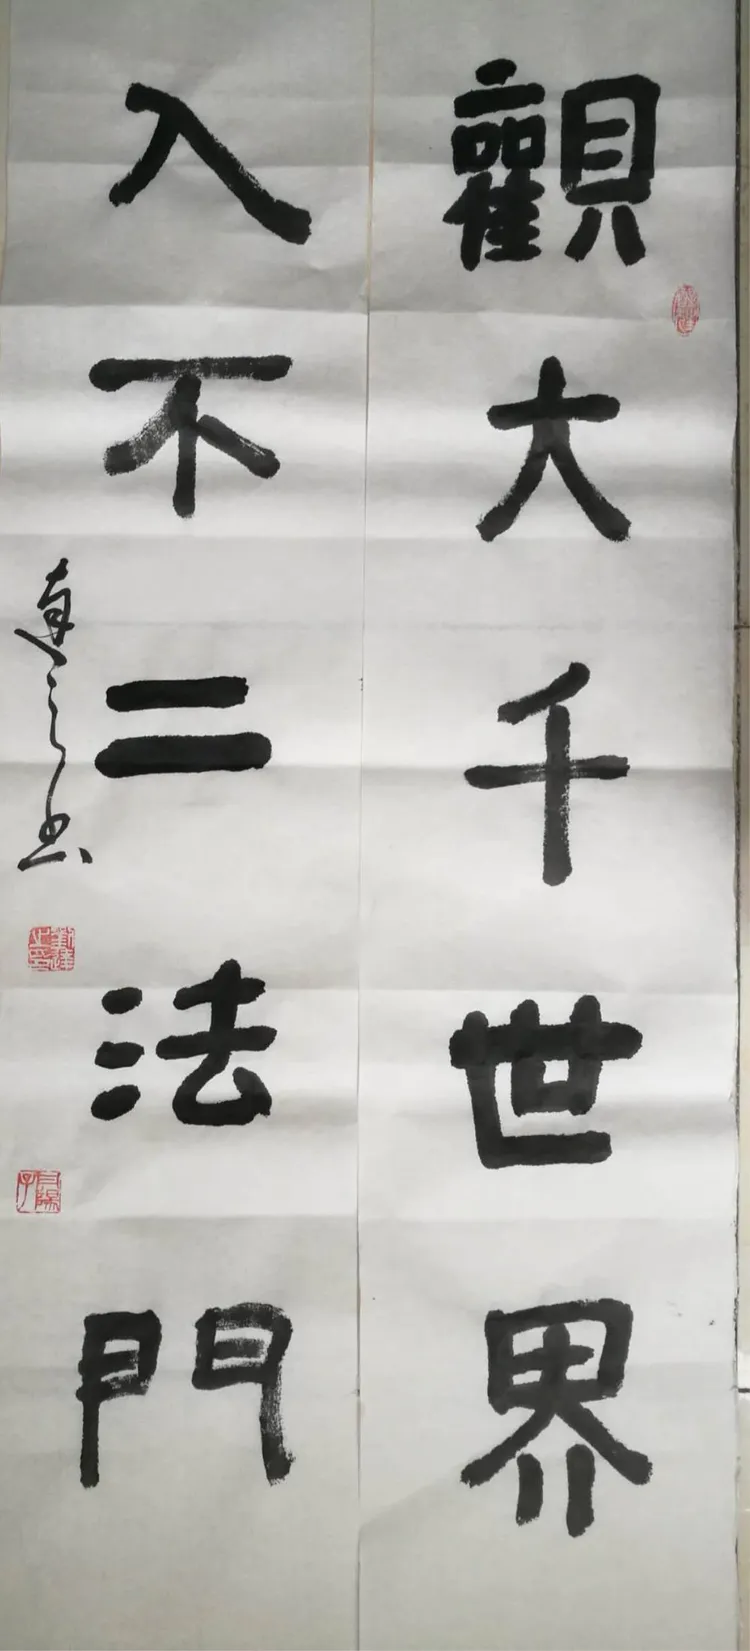 觀大千世界
入不二法門